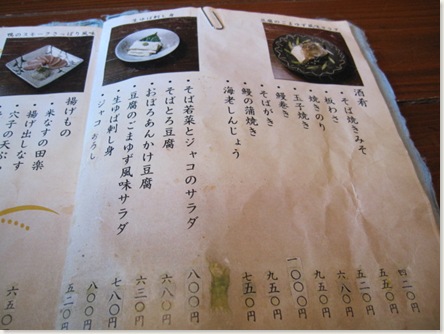 酒肴
・そば焼きみそ
・板わさ
・焼きのり
・玉子焼き
・鰻巻き
・そばがき
・鰻の蒲焼き
・海老しんじょう
・そば若菜とジャコのサラダ
・そばとろ豆腐
・おぼろあんかけ豆腐
・豆腐のごまゆず風味サラダ
・生ゆば刺し身
・ジャコおろし
揚げもの
・米なすの田楽
・揚げ出しなす
・穴子の天ぷ
五五〇円
六八〇円
九五〇円
一〇〇〇円
九五〇円
七五〇円
八〇〇円
六八〇円
六三〇円
七八〇円
八〇〇円
五二〇円
六五〇